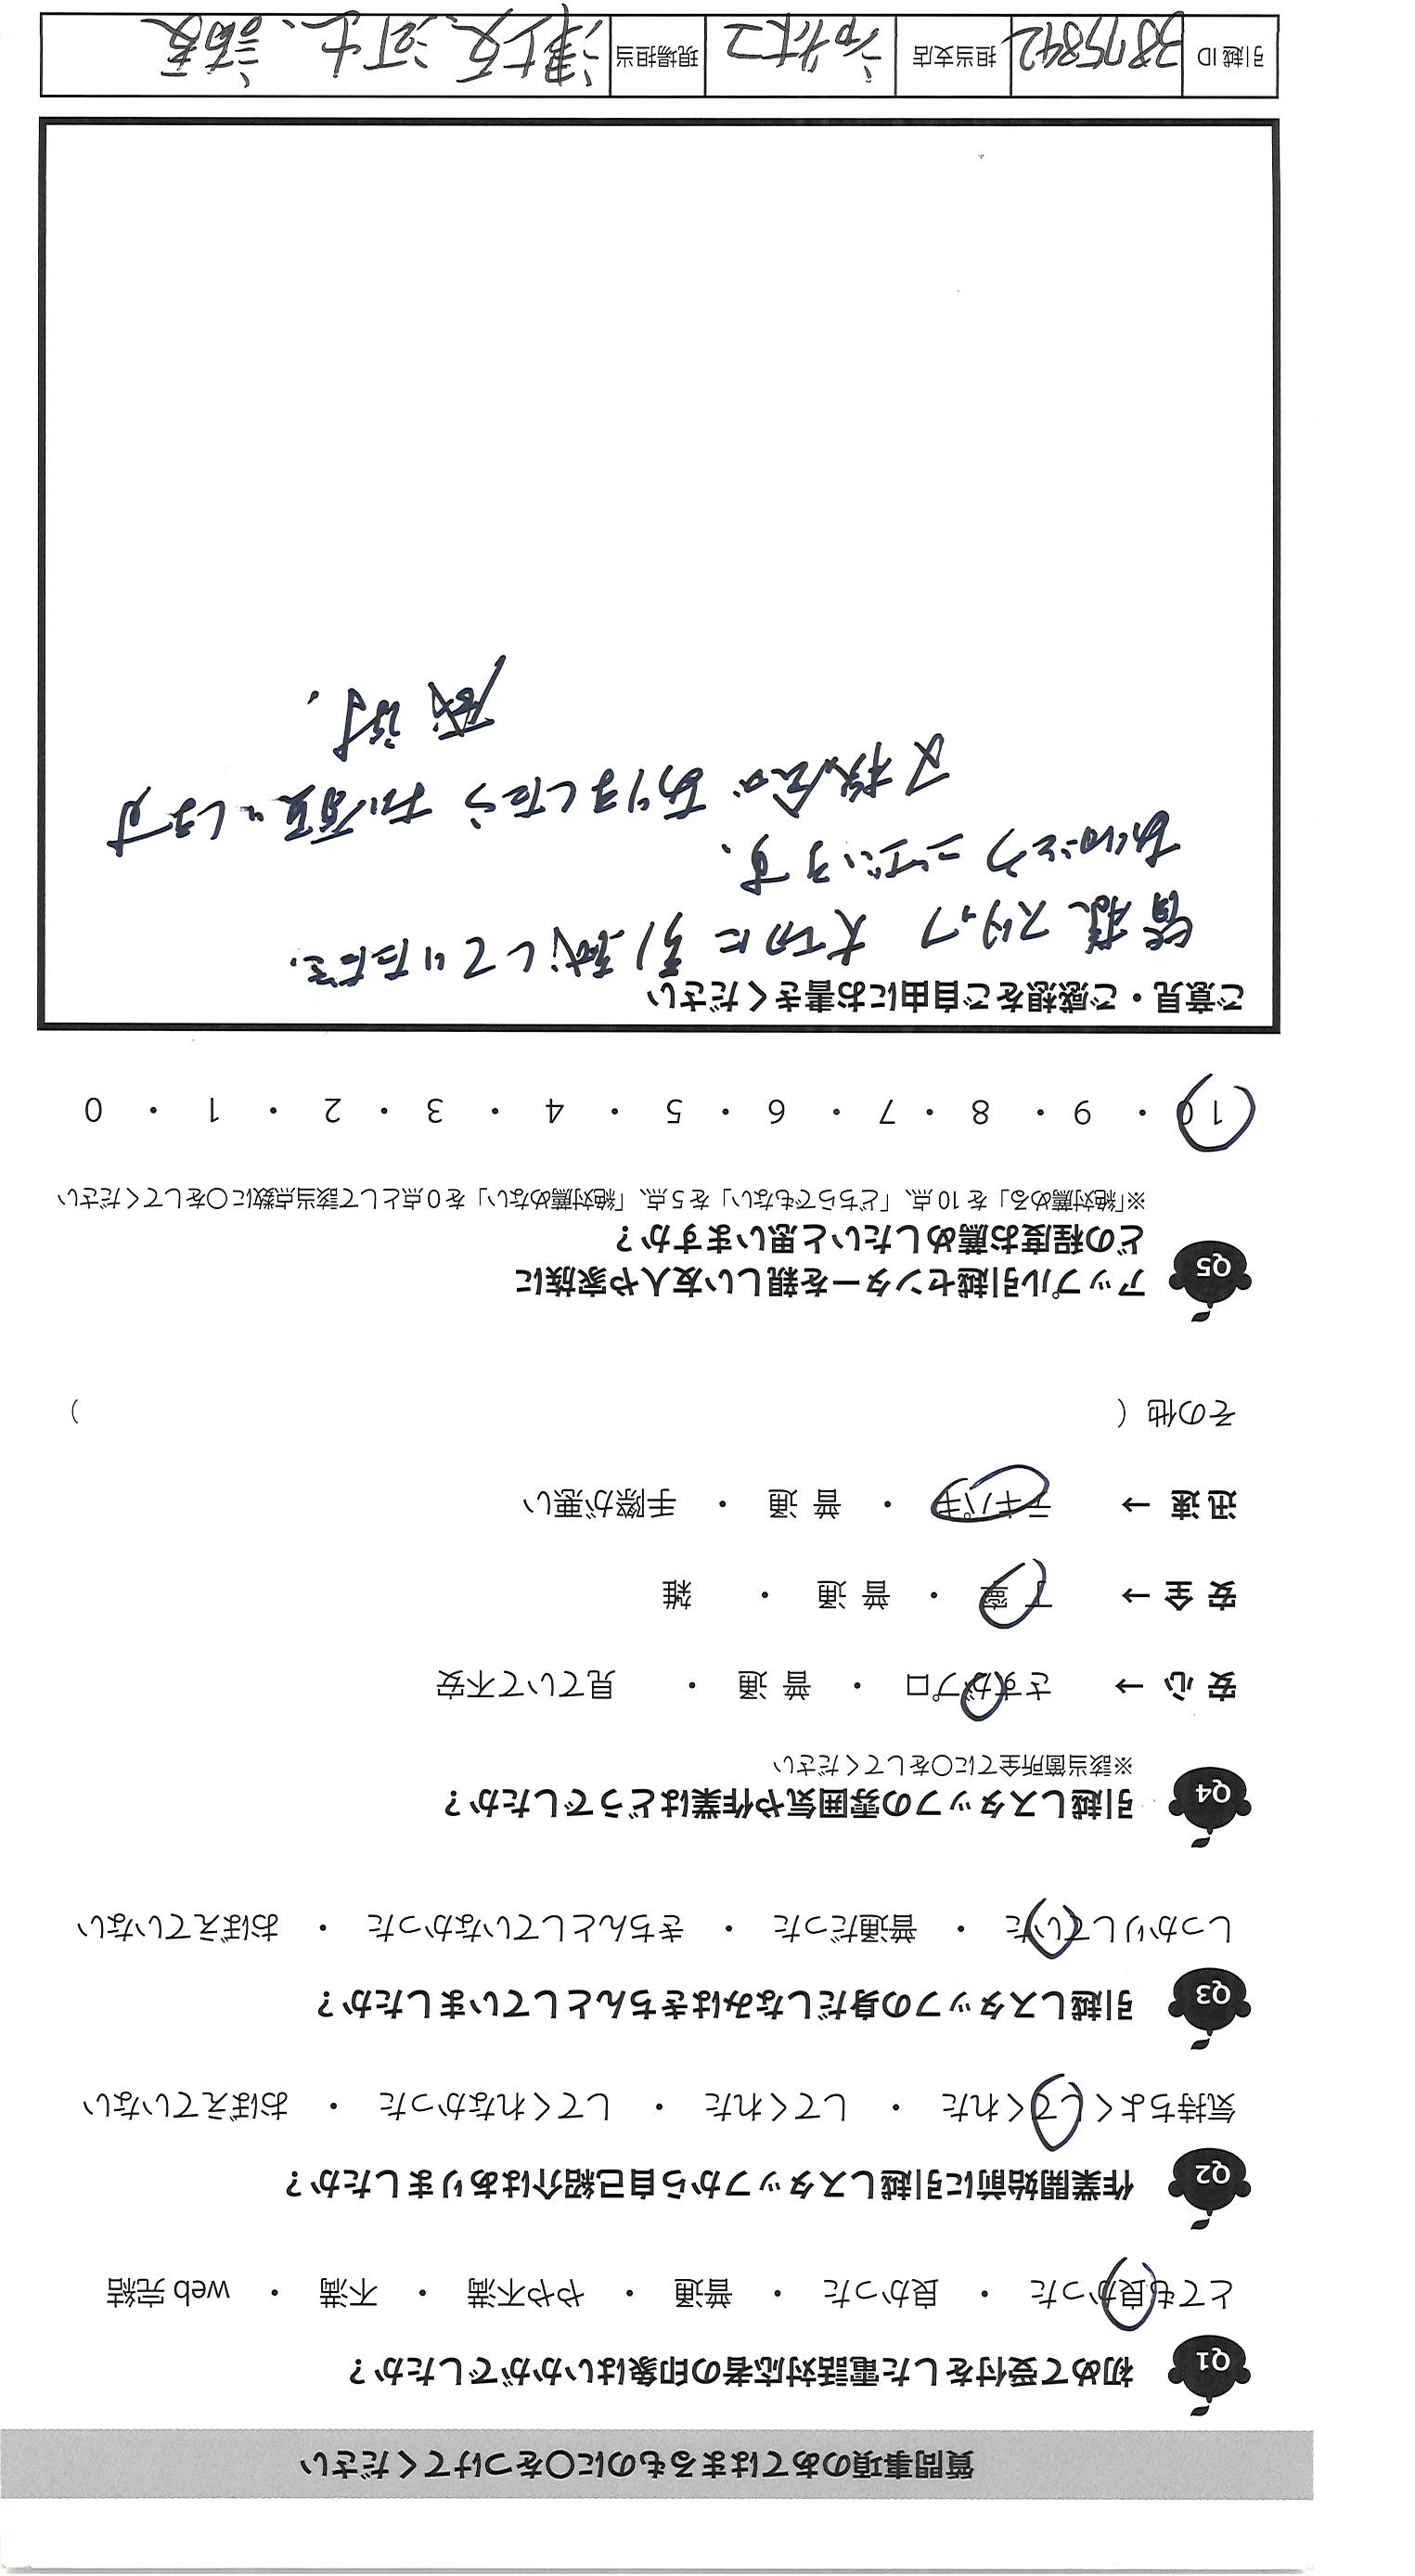 質問事項のあてはまるものに〇をつけてください
Q1 初めて受付をした電話対応者の印象はいかがでしたか？
とても良かった ・ 良かった ・ 普通 ・ やや不満 ・ 不満 ・ web 完結
Q2 作業開始前に引越しスタッフから自己紹介はありましたか？
気持ちよくしてくれた ・ してくれた ・ してくれなかった ・ おぼえていない
Q3 引越しスタッフの身だしなみはきちんとしていましたか？
しっかりしていた ・ 普通だった ・ きちんとしていなかった ・ おぼえていない
Q4 引越しスタッフの雰囲気や作業はどうでしたか？
※該当箇所全てに〇をしてください
安 心 → さすがプロ ・ 普 通 ・ 見ていて不安
安 全 → 丁 寧 ・ 普 通 ・ 雑
迅 速 → テキパキ ・ 普 通 ・ 手際が悪い
その他（ ）
Q5 アップル引越センターを親しい友人や家族に
どの程度お薦めしたいと思いますか？
※「絶対薦める」を 10 点、「どちらでもない」を 5 点、「絶対薦めない」を 0 点として該当点数に〇をしてください
10 ・ 9 ・ 8 ・ 7 ・ 6 ・ 5 ・ 4 ・ 3 ・ 2 ・ 1 ・ 0
ご意見・ご感想をご自由にお書きください
皆様スタッフ 大切に引越していただき、
ありがとうございます、
又機会がありましたらお願いします
感謝、
引越 ID 3875842 担当支店 現場担当 津坂、河士、諏